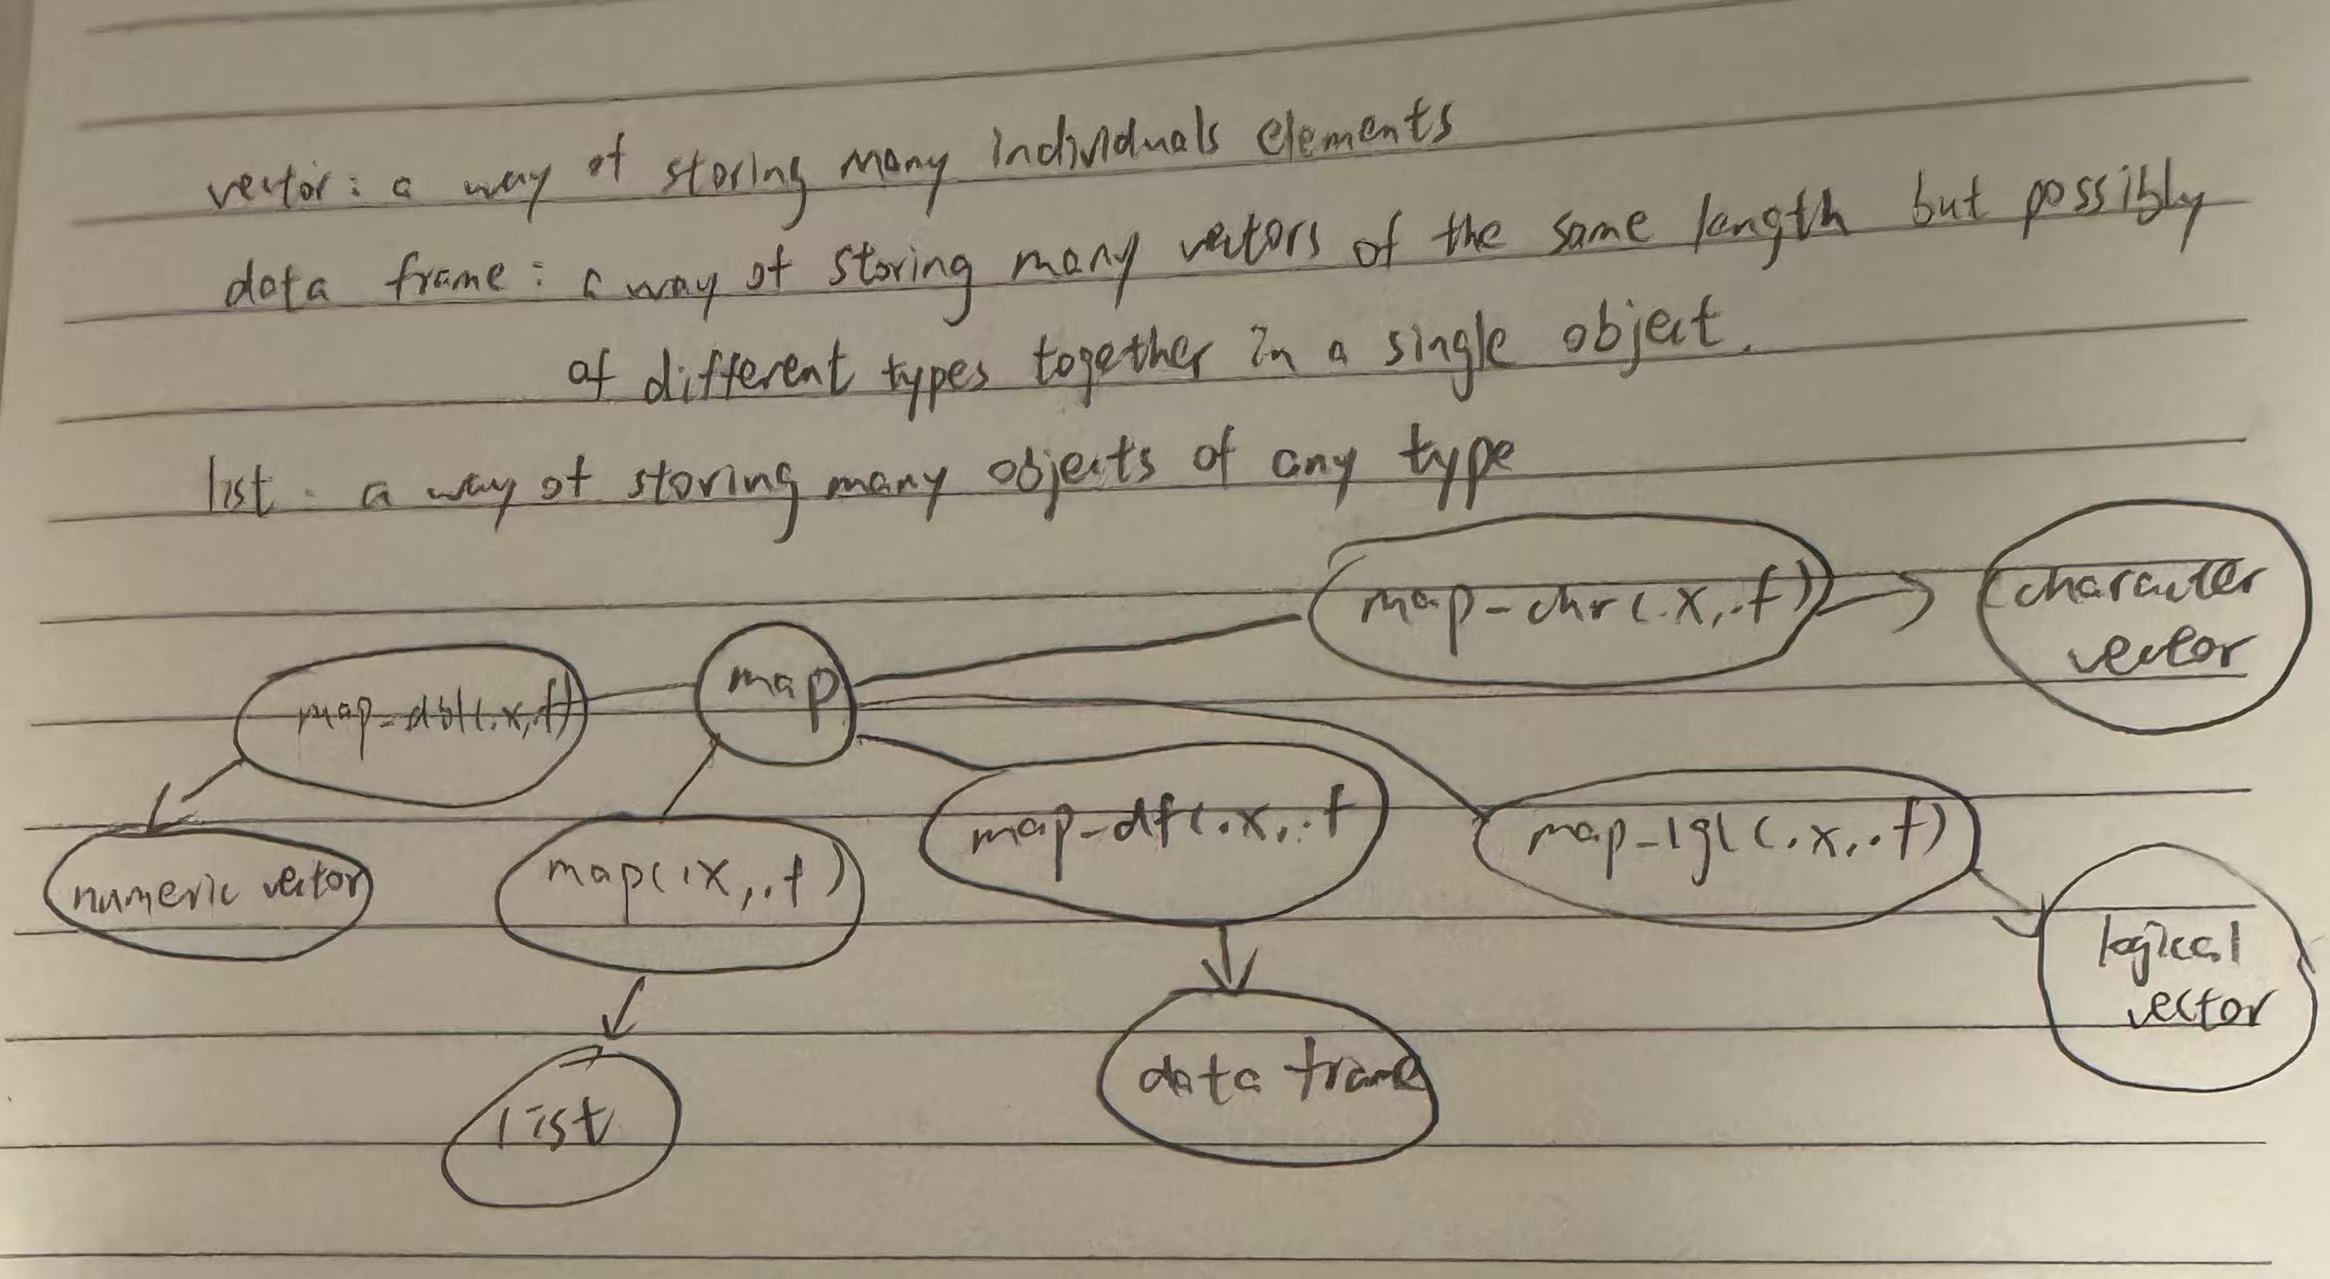 vector: a way of storing many individuals elements
data frame: a way of storing many vectors of the same length but possibly
of different types together in a single object.
list: a way of storing many objects of any type
map-chr(.x,.f)
character
vector
map
map-dbl(.x,.f)
map-df(.x,.f
map-lgl(.x,.f)
map(.x,.f)
numeric vector
logical
vector
data frame
list